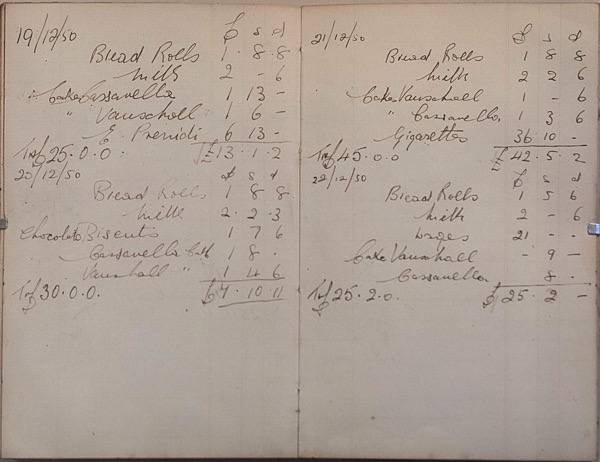 19/12/50 £ s d
Bread Rolls 1 · 8 · 8
Milk 2 - 6
Cake Cassavella 1 13 -
" Vauxhall 1 6 -
E. 6 13 -
£13 · 1 · 2
25 · 0 · 0
20/12/50 £ s d
Bread Rolls 1 8 8
Milk 2 · 2 · 3
Chocolate Biscuits 1 7 6
Cassavella Cake 1 8 ·
Vauxhall " 1 4 6
30 · 0 · 0 · £7 · 10 · 11
21/12/50 £ s d
Bread Rolls 1 8 8
Milk 2 2 6
Cake Vauxhall 1 - 6
" Cassavella 1 3 6
Cigarettes 36 10 -
45 · 0 · 0 £42 · 5 · 2
22/12/50 £ s d
Bread Rolls 1 5 6
Milk 2 - 6
Wages 21 - -
Cake Vauxhall - 9 -
Cassavella 8 ·
25 · 2 · 0 · £25 · 2 -